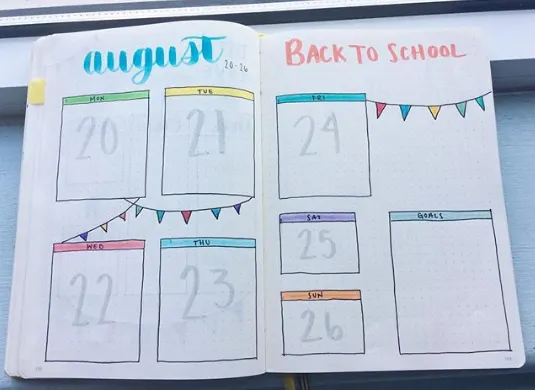 august
20-26
MON
20
TUE
21
WED
22
THU
23
BACK TO SCHOOL
FRI
24
SAT
25
SUN
26
GOALS